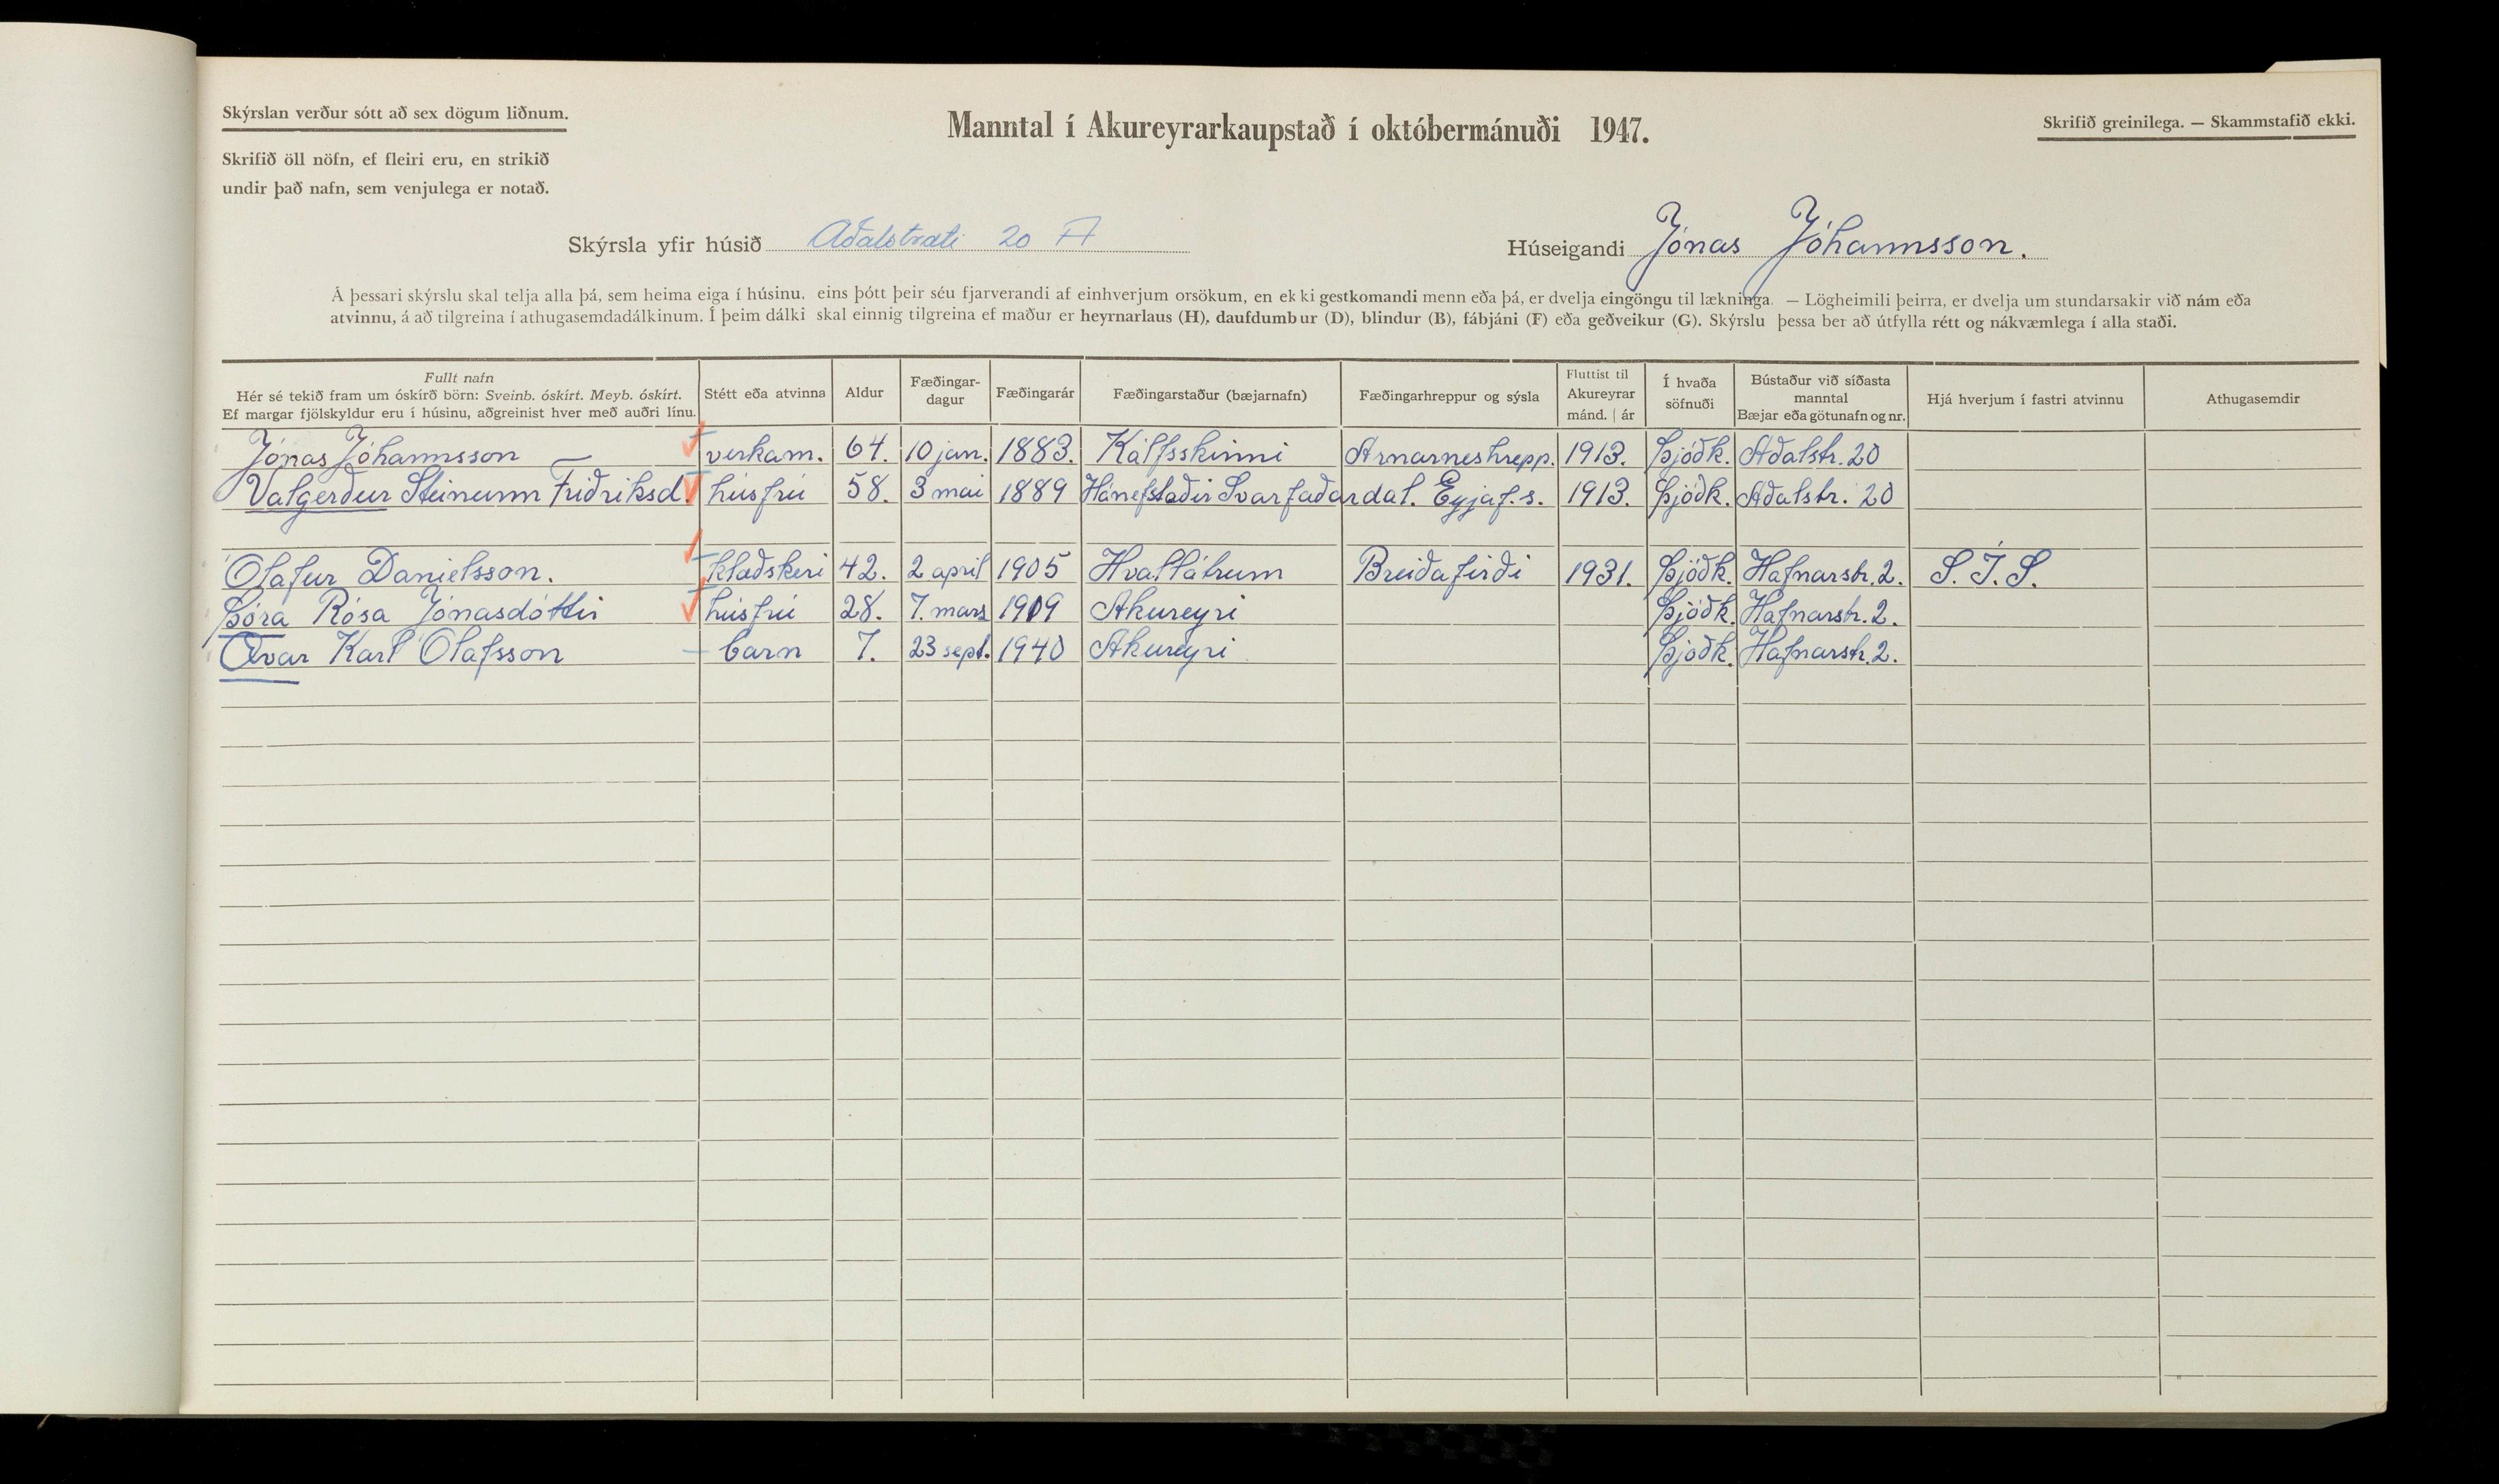 Skýrslan verður sótt að sex dögum liðnum.
Manntal í Akureyrarkaupstað í októbermánuði 1947.
Skrifið greinilega. — Skammstafið ekki.
Skrifið öll nöfn, ef fleiri eru, en strikið
undir það nafn, sem venjulega er notað.
Skýrsla yfir húsið Aðalstræti 20 A
Húseigandi Jónas Jóhannsson.
Á þessari skýrslu skal telja alla þá, sem heima eiga í húsinu, eins þótt þeir séu fjarverandi af einhverjum orsökum, en ekki gestkomandi menn eða þá, er dvelja eingöngu til lækninga. — Lögheimili þeirra, er dvelja um stundarsakir við nám eða
atvinnu, á að tilgreina í athugasemdadálkinum. Í þeim dálki skal einnig tilgreina ef maður er heyrnarlaus (H), daufdumbur (D), blindur (B), fábjáni (F) eða geðveikur (G). Skýrslu þessa ber að útfylla rétt og nákvæmlega í alla staði.
Fullt nafn
Hér sé tekið fram um óskírð börn: Sveinb. óskírt. Meyb. óskírt.
Ef margar fjölskyldur eru í húsinu, aðgreinist hver með auðri línu.
Stétt eða atvinna
Aldur
Fæðingar-
dagur
Fæðingarár
Fæðingarstaður (bæjarnafn)
Fæðingarhreppur og sýsla
Fluttist til
Akureyrar
mánd. | ár
Í hvaða
söfnuði
Bústaður við síðasta
manntal
Bæjar eða götunafn og nr.
Hjá hverjum í fastri atvinnu
Athugasemdir
Jónas Jóhannsson verkam. 64. 10 jan. 1883. Kálfsskinni Arnarneshrepp. 1913. Þjóðk. Aðalstr. 20
Valgerður Steinunn Friðriksd. húsfrú 58. 3 mai 1889 Hánefstaðir Svarfaðardal. Eyjaf.s. 1913. Þjóðk. Aðalstr. 20
Ólafur Daníelsson. klæðskeri 42. 2 april 1905 Hvallátrum Breiðafirði 1931. Þjóðk. Hafnarstr. 2. S.Í.S.
Þóra Rósa Jónasdóttir húsfrú 28. 7. mars 1919 Akureyri Þjóðk. Hafnarstr. 2.
Ævar Karl Ólafsson barn 7. 23 sept. 1940 Akureyri Þjóðk. Hafnarstr. 2.